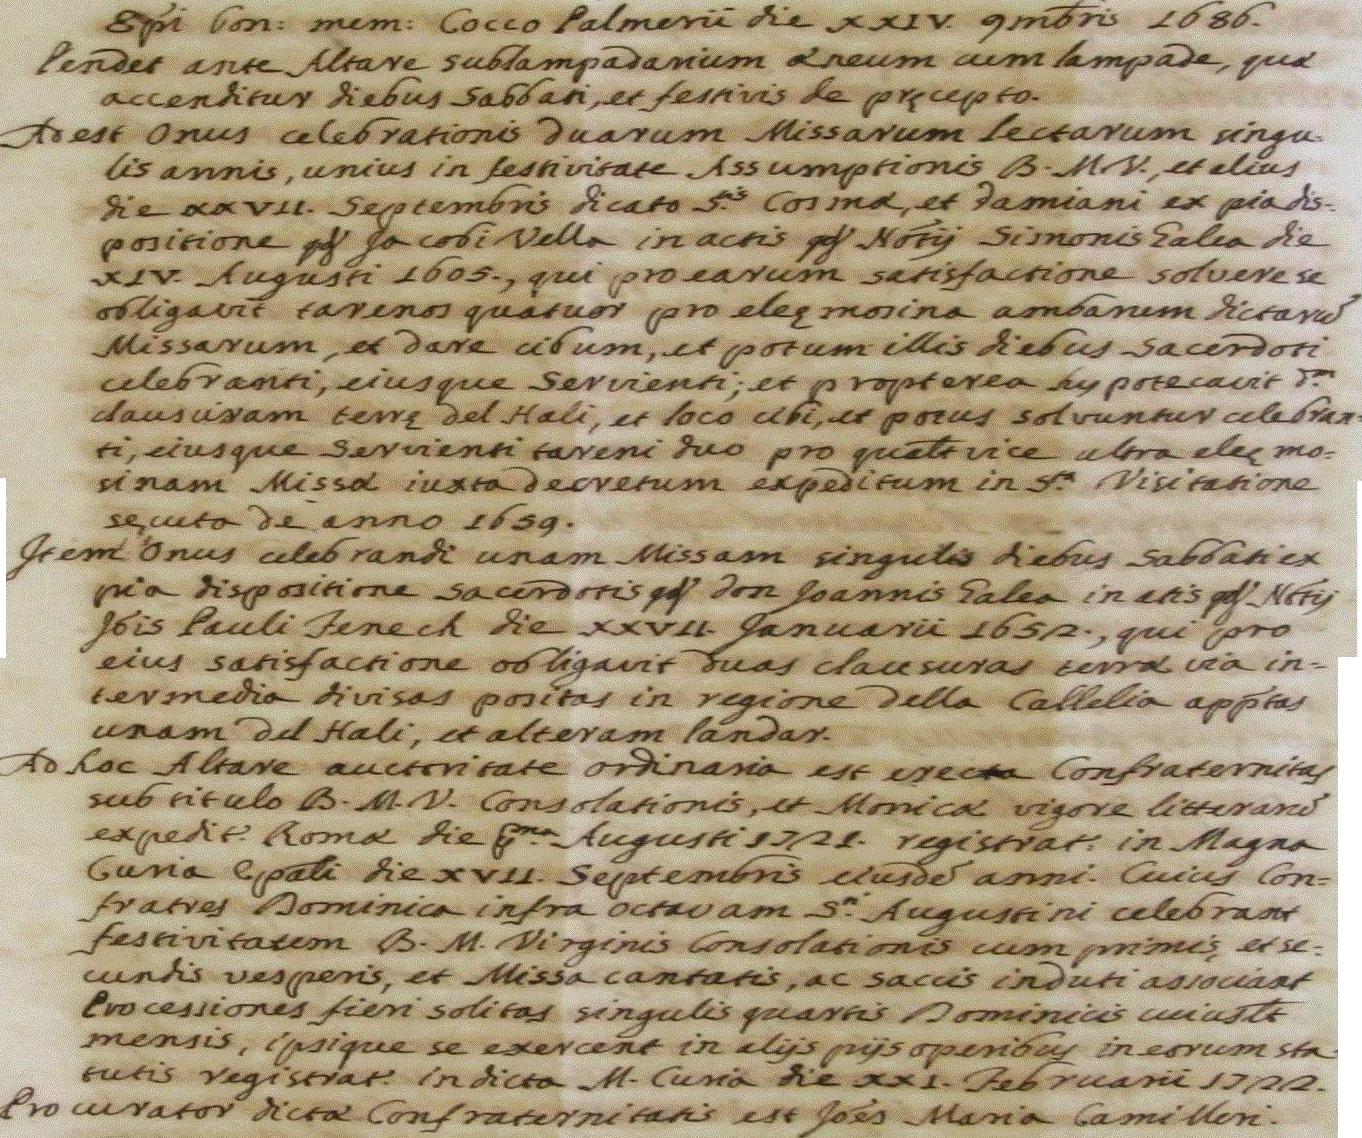 Epi bon: mem: Cocco Palmerii die XXIV. 9mbris 1686.
Pendet ante Altare sublampadarium æneum cum lampade, quæ
accenditur diebus Sabbati, et festivis de pręcepto.
Adest Onus celebrationis duarum Missarum lectarum singu-
lis annis, unius in festivitate Assumptionis B. M. V., et alius
die XXVII. Septembris dicato S.tis Cosmæ, et Damiani ex pia dis-
positione qd Jacobi Vella in actis qd Notij Simonis Galea die
XIV. Augusti 1605., qui pro earum satisfactione solvere se
obligavit tarenos quatuor pro eleęmosina ambarum dictarū
Missarum, et dare cibum, et potum illis diebus Sacerdoti
celebranti, eiusque Servienti; et propterea hypotecavit d.m
clausuram terrę del Hali, et loco cibi, et potus solvuntur celebran-
ti, eiusque Servienti tareni duo pro qualt vice ultra eleęmo-
sinam Missæ iuxta decretum expeditum in S.ta Visitatione
sęcuta de anno 1659.
Item Onus celebrandi unam Missam singulis diebus Sabbati ex
pia dispositione sacerdotis qd don Joannis Galea in atis qd Notij
Jois Pauli Fenech die XXVII. Januarii 1652., qui pro
eius satisfactione obligavit duas clausuras terræ via in-
termedia divisas positas in regione della Callelia appt̄as
unam del Hali, et alteram landar.
Ad hoc Altare auctoritate ordinaria est erecta Confraternitas
sub titulo B. M. V. Consolationis, et Monicæ vigore litterarū
expedit. Romæ die p.ma Augusti 1721. registrat. in Magna
Curia Epali die XVII. Septembris eiusdē anni. Cuius Con-
fratres Dominica infra octavam S.ti Augustini celebrant
festivitatem B. M. Virginis Consolationis cum primis, et se-
cundis vesperis, et Missa cantatis, ac saccis induti associant
Processiones fieri solitas singulis quartis Dominicis cuiuslt
mensis, ipsique se exercent in alijs pijs operibus in eorum sta-
tutis registrat. in dicta M. Curia die XXI. Februarii 1722.
Procurator dictæ Confraternitatis est Joēs Maria Camilleri.